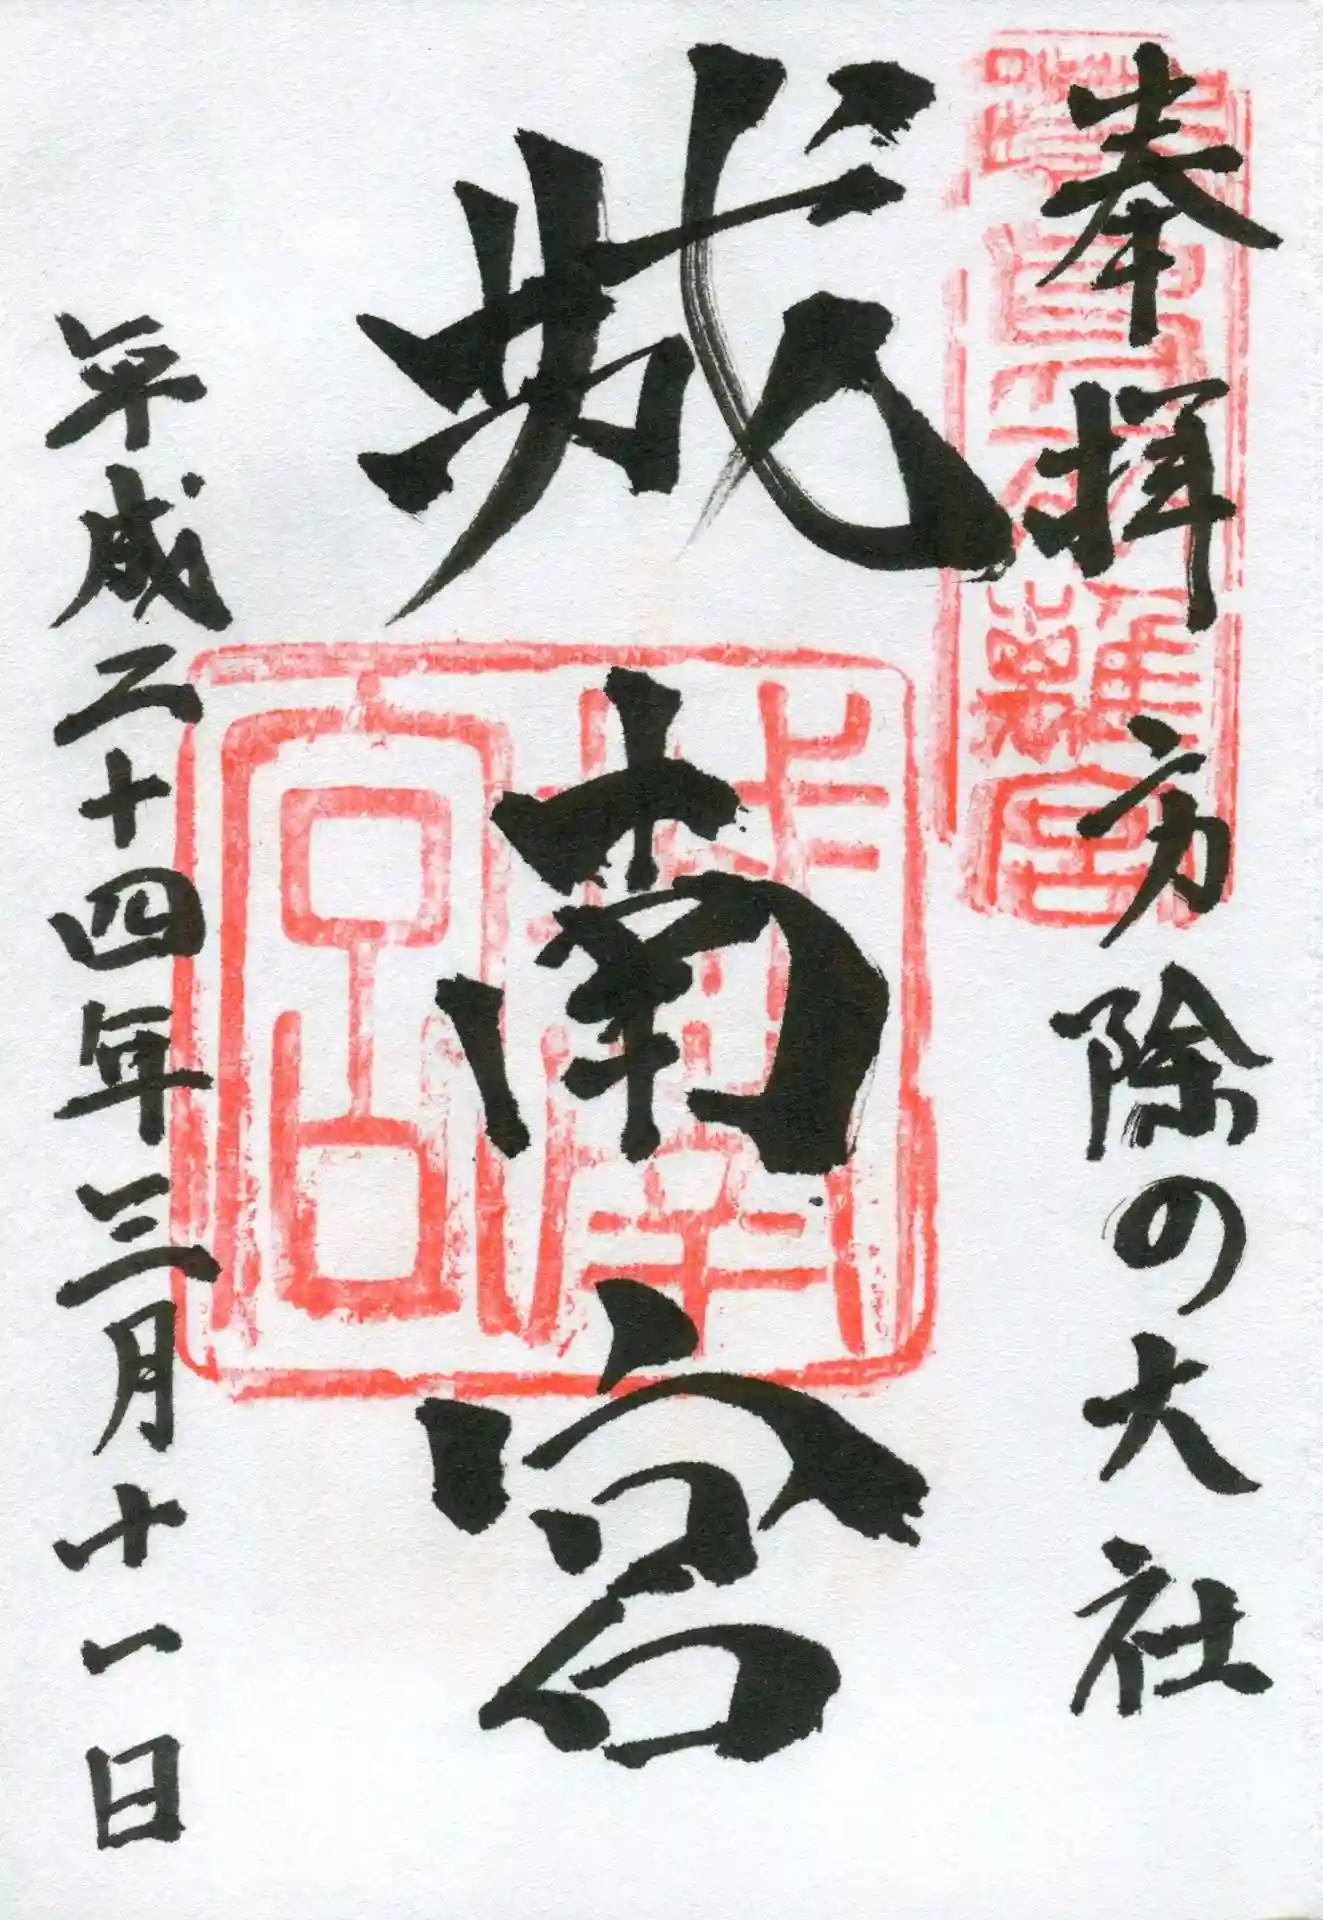 奉拝 方除の大社
城南宮
平成二十四年三月十一日
城南宮